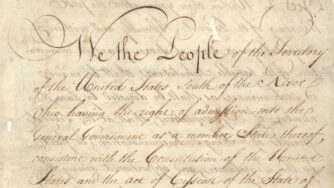 We the People of the Territory
of the United States South of the River
Ohio having the right of admission into the
General Government as a member State thereof,
consistent with the Constitution of the United
States and the act of Cession of the State of